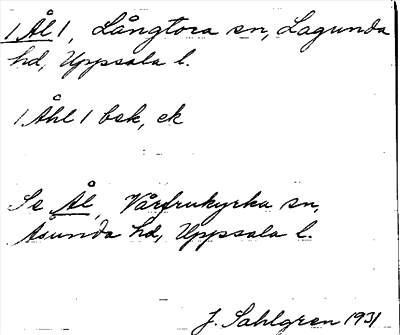 /Ål/, Långtora sn, Lagunda
hd, Uppsala l.
/Åhl/ bsk, ek
Se Ål, Vårfrukyrka sn,
Åsunda hd, Uppsala l.
J. Sahlgren 1931